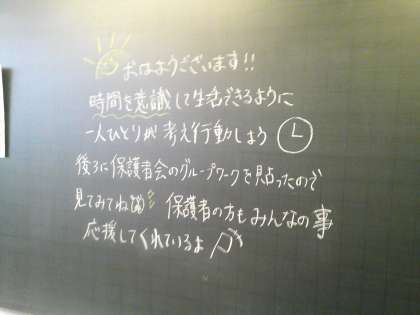 おはようございます!!
時間を意識して生活できるように
一人ひとりが考え行動しよう
後ろに保護者会のグループワークを貼ったので
見てみてね 保護者の方もみんなの事
応援してくれているよ